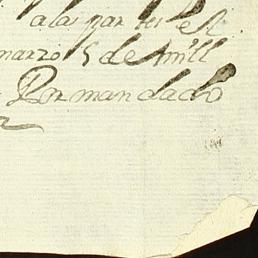 a las partes El
marzo 5 de mill
Por mandado